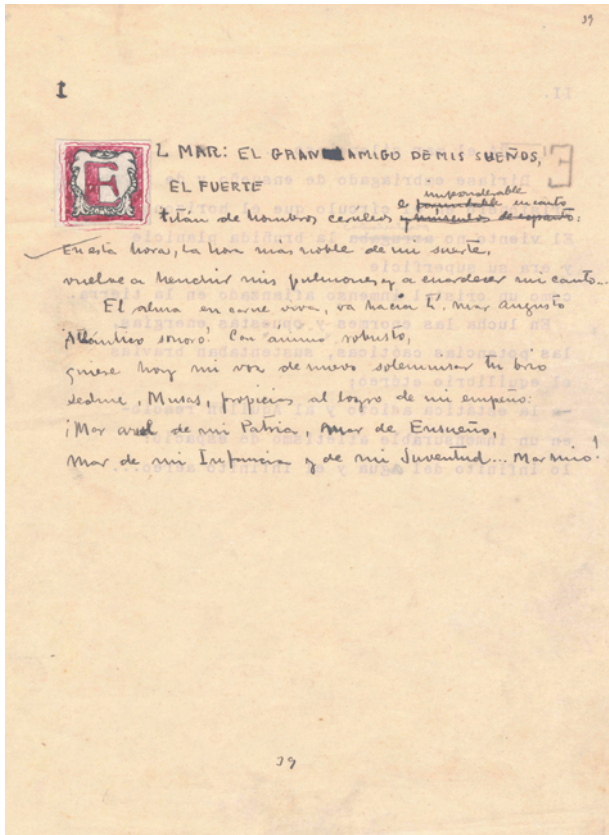 39
I
EL MAR: EL GRAN AMIGO DE MIS SUEÑOS,
EL FUERTE
imponderable
e encanto
titán de hombros cerúleos :
En esta hora, la hora mas noble de mi suerte,
vuelve a henchir mis pulmones y a enardecer mi canto...
El alma en carne viva, va hacia ti, mar augusto
¡Atlántico sonoro! Con ánimo robusto,
quiere hoy mi voz de nuevo solemnizar tu brio
sedme, Musas, propicias al logro de mi empeño:
¡Mar azul de mi Patria, Mar de Ensueño,
Mar de mi Infancia y de mi Juventud... Mar mio!
39